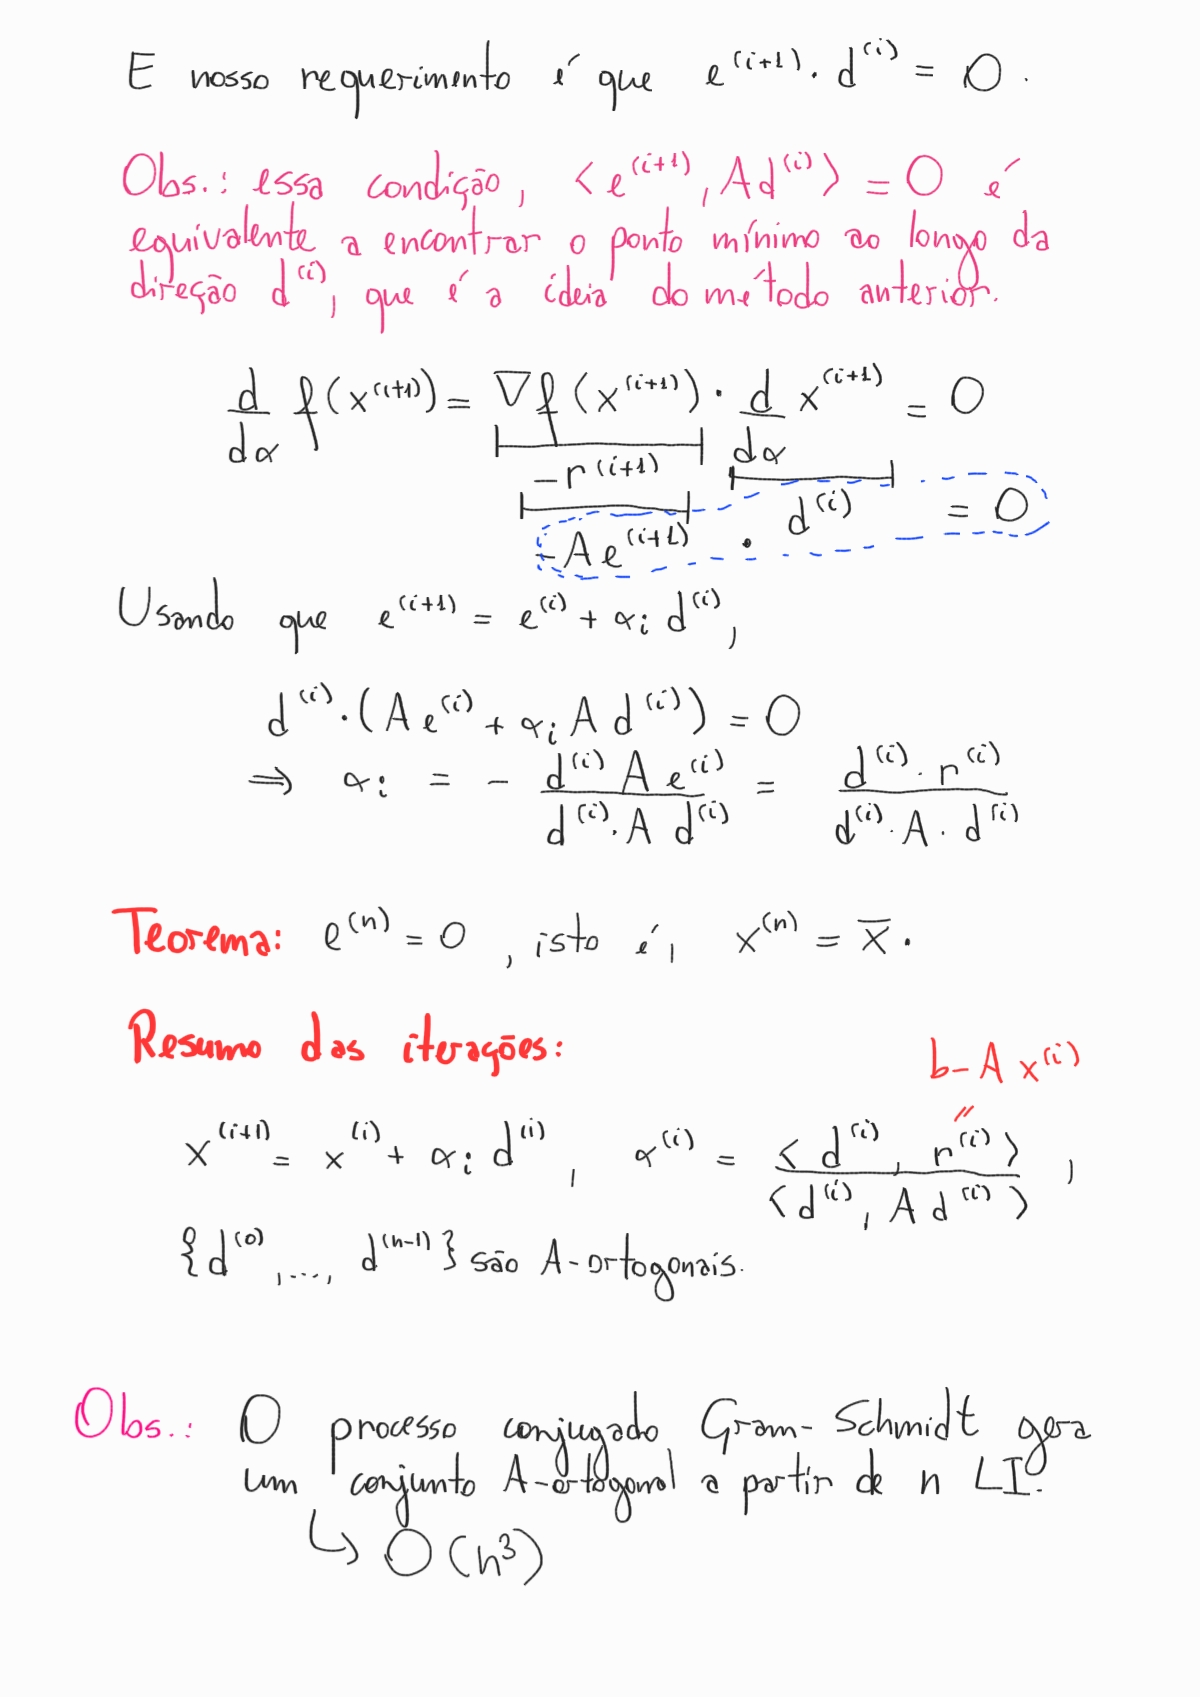 E nosso requerimento é que e^(i+1) · d^(i) = 0.
Obs.: essa condição, <e^(i+1), Ad^(i)> = 0 é
equivalente a encontrar o ponto mínimo ao longo da
direção d^(i), que é a ideia do método anterior.
d/dα f(x^(i+1)) = ∇f(x^(i+1)) · d/dα x^(i+1) = 0
-r^(i+1)
-Ae^(i+1) · d^(i) = 0
Usando que e^(i+1) = e^(i) + α_i d^(i),
d^(i) · (A e^(i) + α_i A d^(i)) = 0
⇒ α_i = - d^(i) A e^(i) / d^(i) · A d^(i) = d^(i) · r^(i) / d^(i) · A · d^(i)
Teorema: e^(n) = 0, isto é, x^(n) = x̄.
Resumo das iterações:
b - A x^(i)
"
x^(i+1) = x^(i) + α_i d^(i), α^(i) = <d^(i), r^(i)> / <d^(i), A d^(i)>,
{d^(0), ..., d^(n-1)} são A-ortogonais.
Obs.: O processo conjugado Gram-Schmidt gera
um conjunto A-ortogonal a partir de n LI.
↳ O(n³)